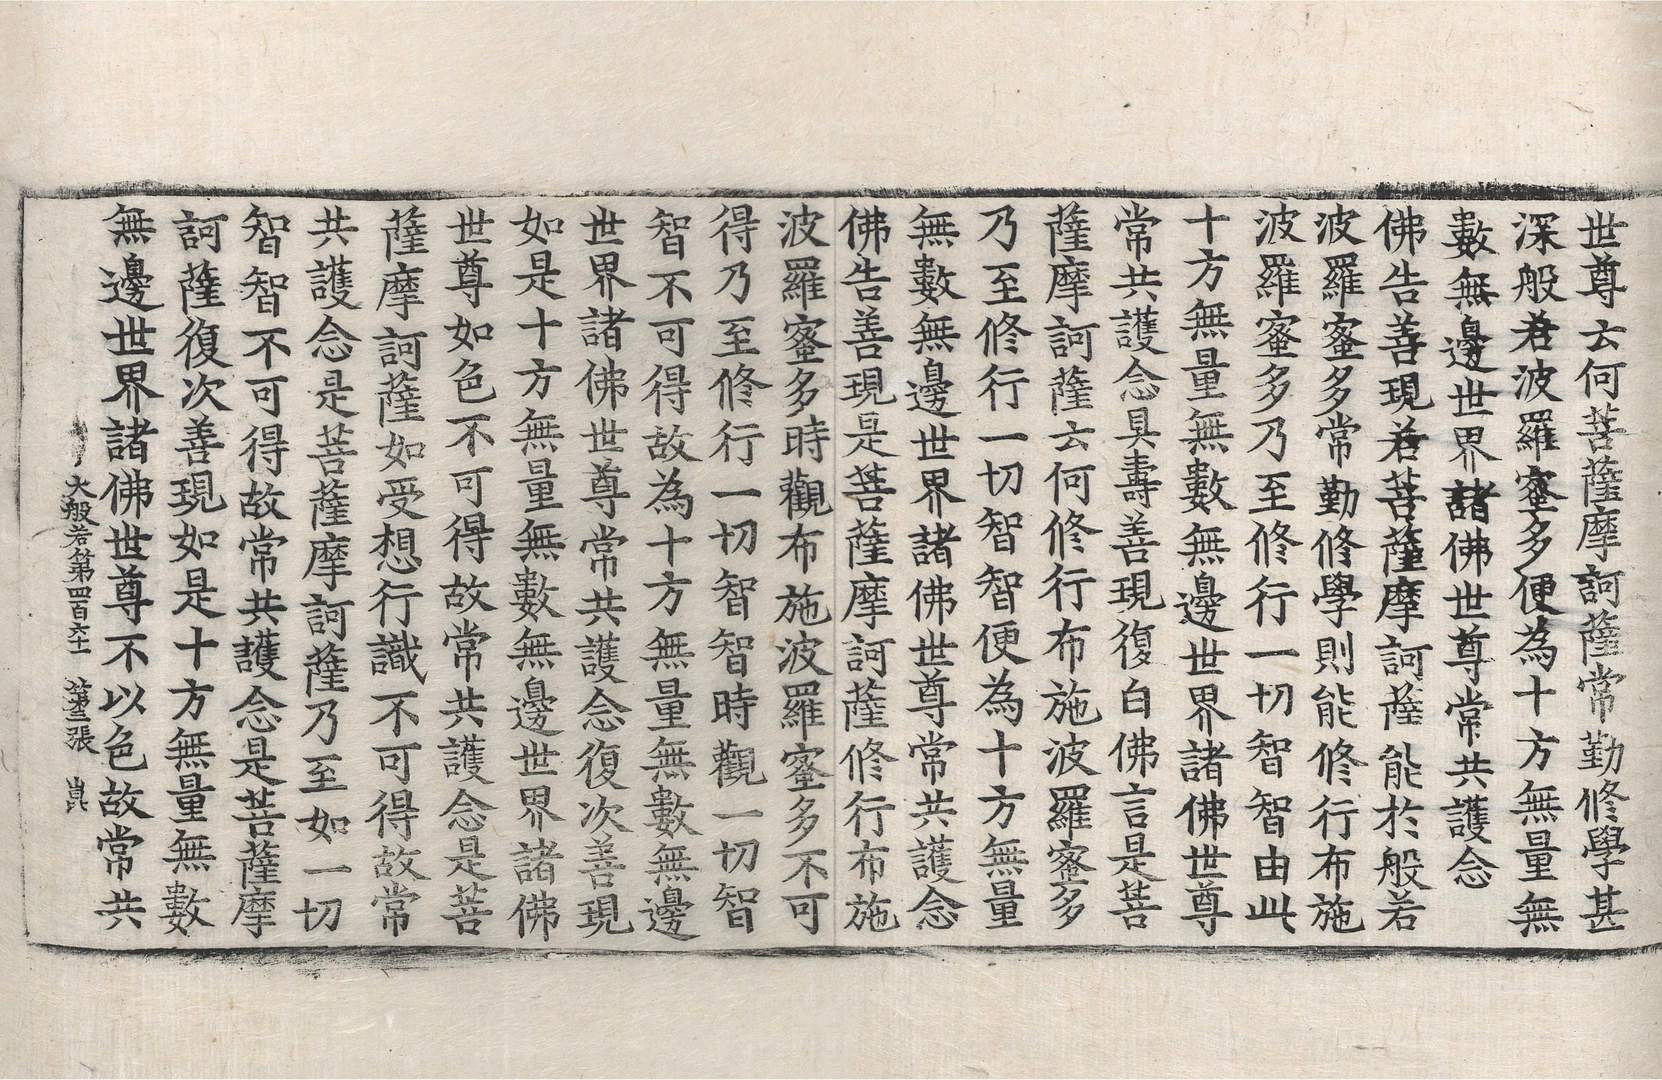 世尊云何菩薩摩訶薩常勤修學甚
深般若波羅蜜多便為十方無量無
數無邊世界諸佛世尊常共護念
佛告善現若菩薩摩訶薩能於般若
波羅蜜多常勤修學則能修行布施
波羅蜜多乃至修行一切智智由此
十方無量無數無邊世界諸佛世尊
常共護念具壽善現復白佛言是菩
薩摩訶薩云何修行布施波羅蜜多
乃至修行一切智智便為十方無量
無數無邊世界諸佛世尊常共護念
佛告善現是菩薩摩訶薩修行布施
波羅蜜多時觀布施波羅蜜多不可
得乃至修行一切智智時觀一切智
智不可得故為十方無量無數無邊
世界諸佛世尊常共護念復次善現
如是十方無量無數無邊世界諸佛
世尊如色不可得故常共護念是菩
薩摩訶薩如受想行識不可得故常
共護念是菩薩摩訶薩乃至如一切
智智不可得故常共護念是菩薩摩
訶薩復次善現如是十方無量無數
無邊世界諸佛世尊不以色故常共
大般若第四百六十一 第三張 崑